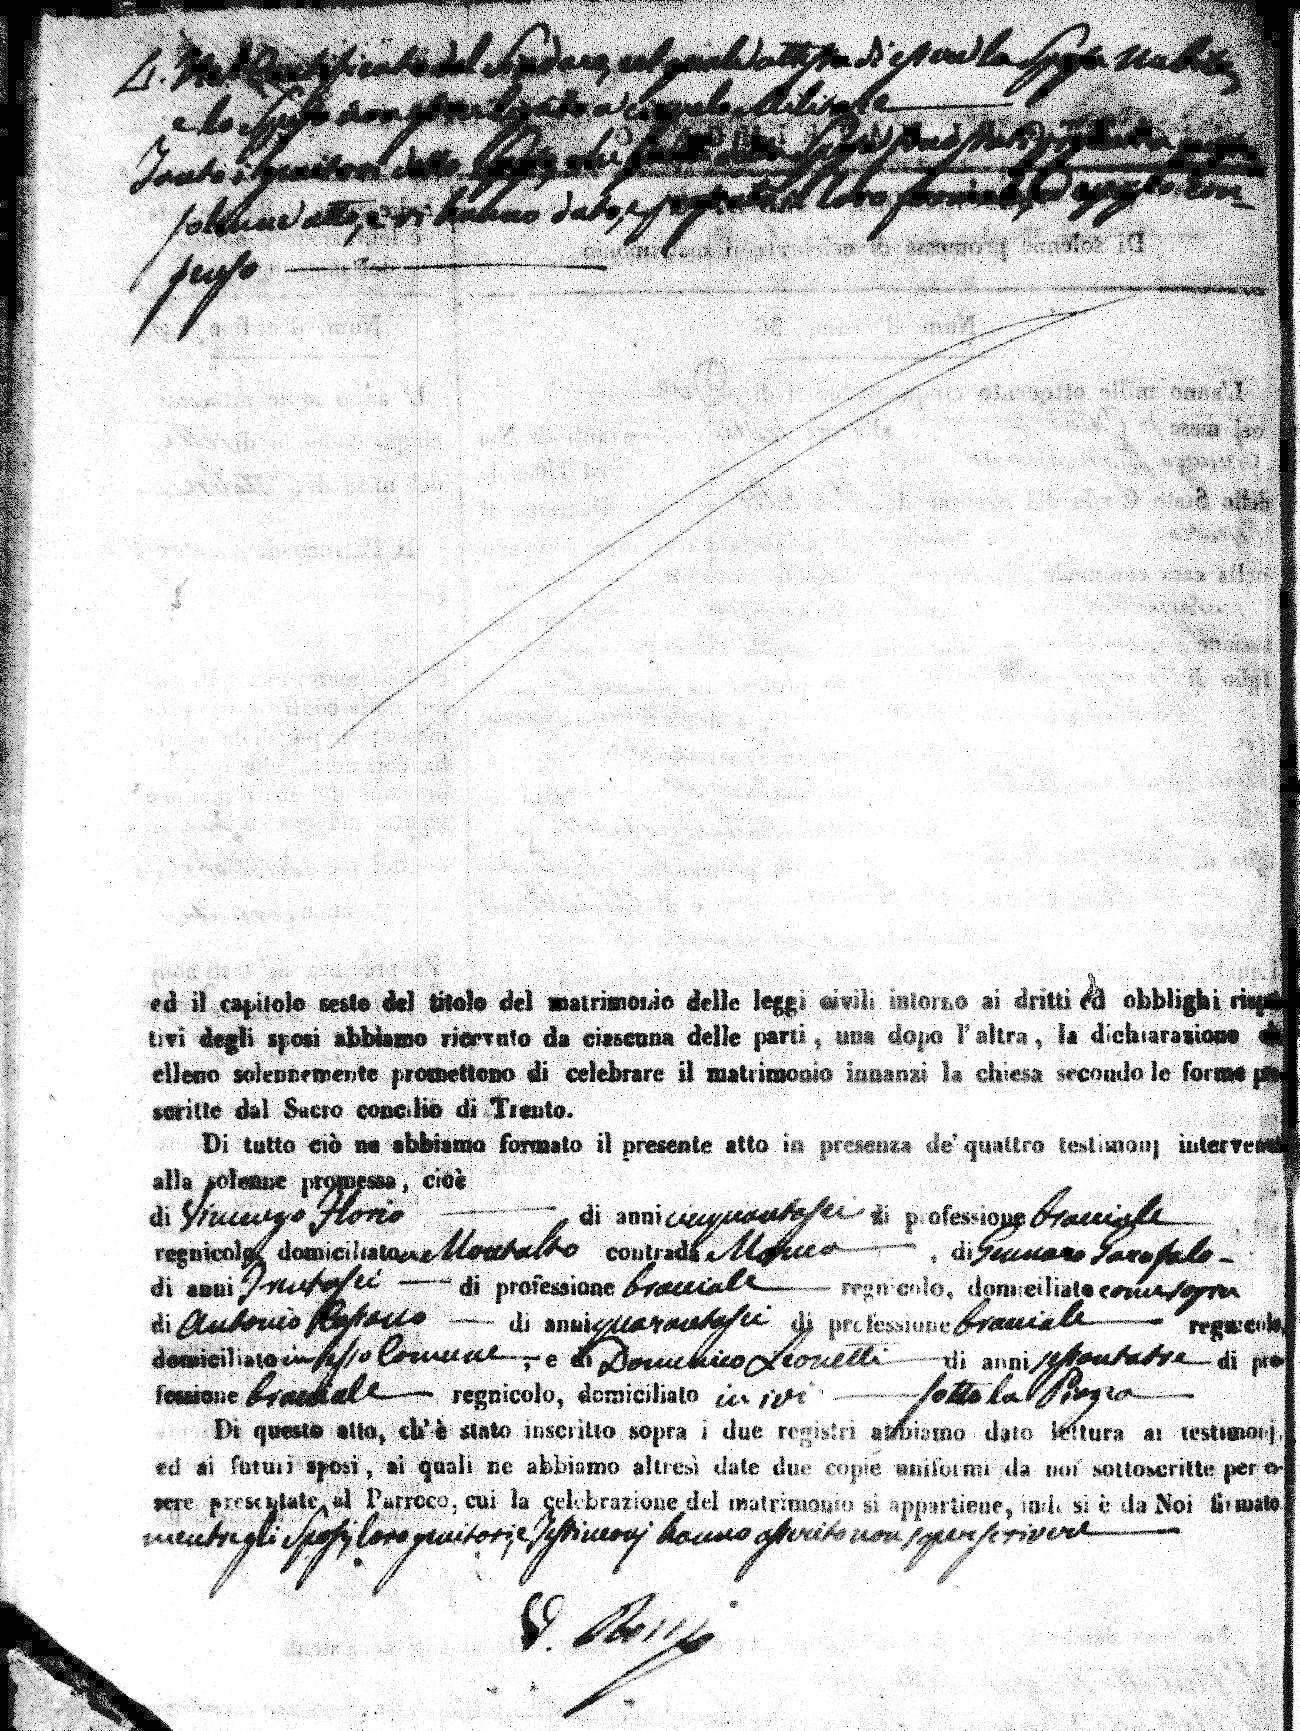 4. Nel Certificato del Sindaco, col quale attesta di essere la Sposa nubile,
e lo Sposo non soggetto a Congedo Militare
Tanto i genitori dello Sposo, che
solenne atto, e vi hanno dato, e prestato il loro formale, ed espresso con-
senso
ed il capitolo sesto del titolo del matrimonio delle leggi civili intorno ai dritti ed obblighi rispet
tivi degli sposi abbiamo ricevuto da ciascuna delle parti, una dopo l'altra, la dichiarazione che
elleno solennemente promettono di celebrare il matrimonio innanzi la chiesa secondo le forme pre-
scritte dal Sacro concilio di Trento.
Di tutto ciò ne abbiamo formato il presente atto in presenza de' quattro testimonj intervenuti
alla solenne promessa, cioè
di Vincenzo Florio di anni cinquantasei di professione bracciale
regnicolo, domiciliato in Montalto contrada , di Gennaro Garofalo
di anni Trentasei di professione bracciale regnicolo, domiciliato come sopra
di Antonio di anni quarantasei di professione bracciale regnicolo,
domiciliato in stesso Comune, e di Domenico Leonetti di anni sessantatre di pro-
fessione bracciale regnicolo, domiciliato in ivi sotto la Piazza
Di questo atto, ch'è stato inscritto sopra i due registri abbiamo dato lettura ai testimonj,
ed ai futuri sposi, ai quali ne abbiamo altresì date due copie uniformi da noi sottoscritte per es-
sere presentate al Parroco, cui la celebrazione del matrimonio si appartiene, indi si è da Noi firmato
mentre gli Sposi, loro genitori, e Testimonj hanno asserito non saper scrivere